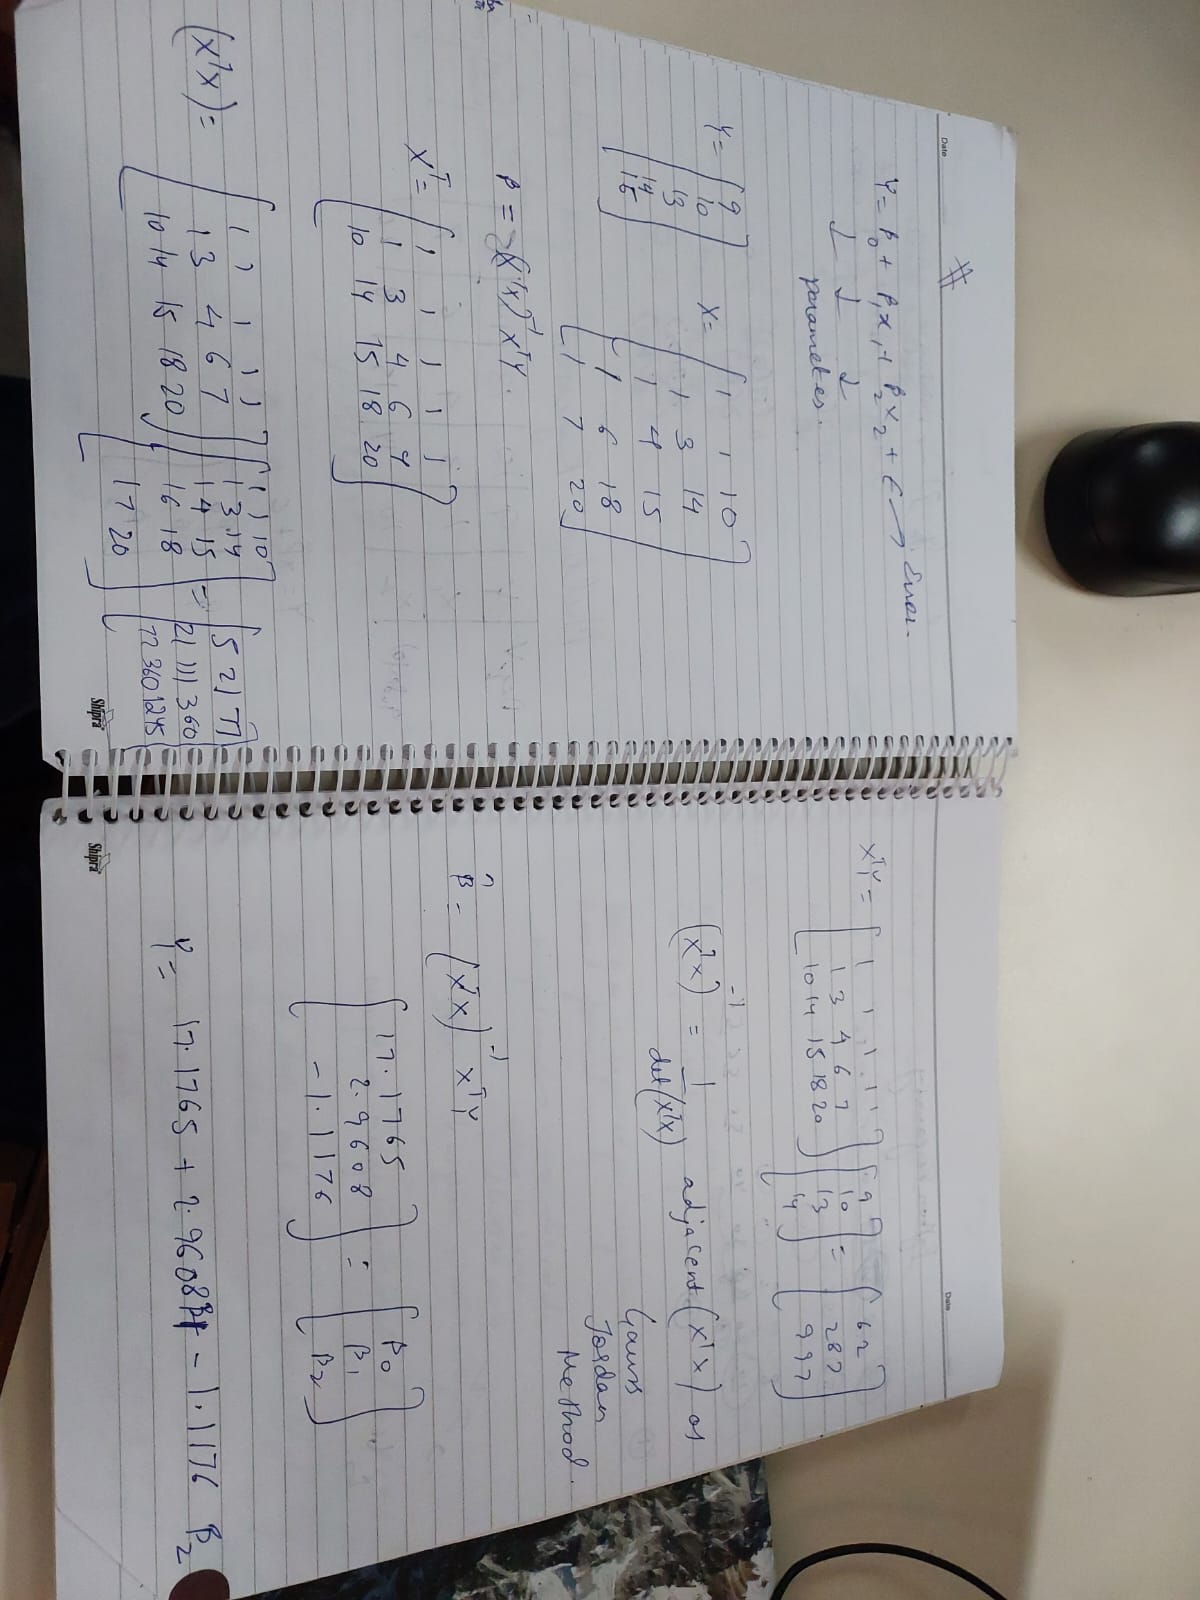 Date
#
Y = β0 + β1x1 + β2x2 + ε → Error.
↓ ↓ ↓
parameters.
Y = [ 9
10
13
14
16 ]
X = [ 1 1 10
1 3 14
1 4 15
1 6 18
1 7 20 ]
β = (XᵀX)⁻¹ XᵀY.
Xᵀ = [ 1 1 1 1 1
1 3 4 6 7
10 14 15 18 20 ]
(XᵀX) = [ 1 1 1 1 1
1 3 4 6 7
10 14 15 18 20 ] [ 1 1 10
1 3 14
1 4 15
1 6 18
1 7 20 ] = [ 5 21 77
21 111 360
77 360 1245 ]
Shipra
Date
XᵀY = [ 1 1 1 1 1
1 3 4 6 7
10 14 15 18 20 ] [ 9
10
13
14 ] = [ 62
287
997 ]
(XᵀX)⁻¹ = 1 / det(XᵀX) adjacent (XᵀX) or
Gauss
Jordan
Method.
β̂ = (XᵀX)⁻¹ XᵀY
[ 17.1765
2.9608
-1.1176 ] = [ β0
β1
β2 ]
Y = 17.1765 + 2.9608β1 - 1.1176 β2
Shipra